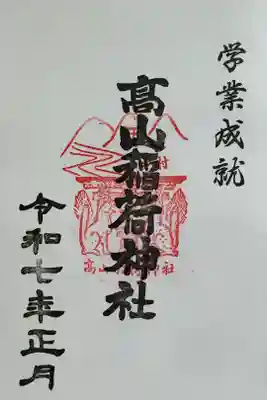 学業成就
髙山稲荷神社
令和七年正月
村
高山
神社